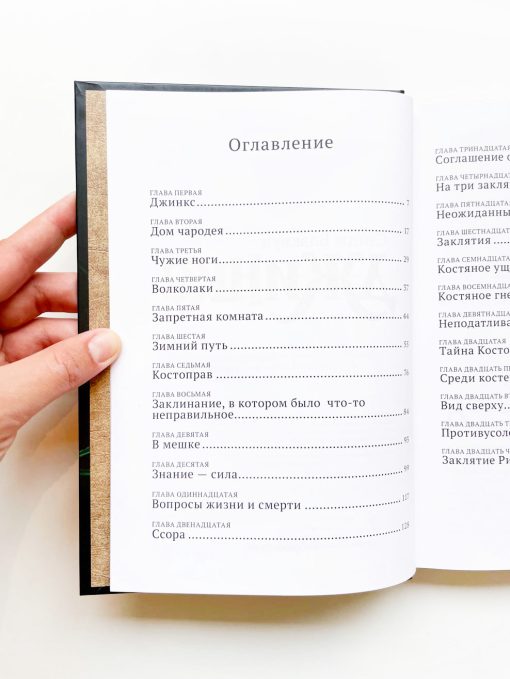 Оглавление
ГЛАВА ПЕРВАЯ
Джинкс 7
ГЛАВА ВТОРАЯ
Дом чародея 17
ГЛАВА ТРЕТЬЯ
Чужие ноги 29
ГЛАВА ЧЕТВЕРТАЯ
Волколаки 37
ГЛАВА ПЯТАЯ
Запретная комната 44
ГЛАВА ШЕСТАЯ
Зимний путь 53
ГЛАВА СЕДЬМАЯ
Костоправ 76
ГЛАВА ВОСЬМАЯ
Заклинание, в котором было что-то
неправильное 84
ГЛАВА ДЕВЯТАЯ
В мешке 95
ГЛАВА ДЕСЯТАЯ
Знание — сила 99
ГЛАВА ОДИННАДЦАТАЯ
Вопросы жизни и смерти 117
ГЛАВА ДВЕНАДЦАТАЯ
Ссора 128
ГЛАВА ТРИНАДЦАТАЯ
Соглашение
ГЛАВА ЧЕТЫРНАДЦАТ
На три закля
ГЛАВА ПЯТНАДЦАТАЯ
Неожиданны
ГЛАВА ШЕСТНАДЦАТ
Заклятия
ГЛАВА СЕМНАДЦАТА
Костяное ущ
ГЛАВА ВОСЕМНАДЦАТ
Костяное гне
ГЛАВА ДЕВЯТНАДЦАТ
Неподатлива
ГЛАВА ДВАДЦАТАЯ
Тайна Косто
ГЛАВА ДВАДЦАТЬ П
Среди косте
ГЛАВА ДВАДЦАТЬ В
Вид сверху
ГЛАВА ДВАДЦАТЬ Т
Противусоло
ГЛАВА ДВАДЦАТЬ Ч
Заклятие Ри